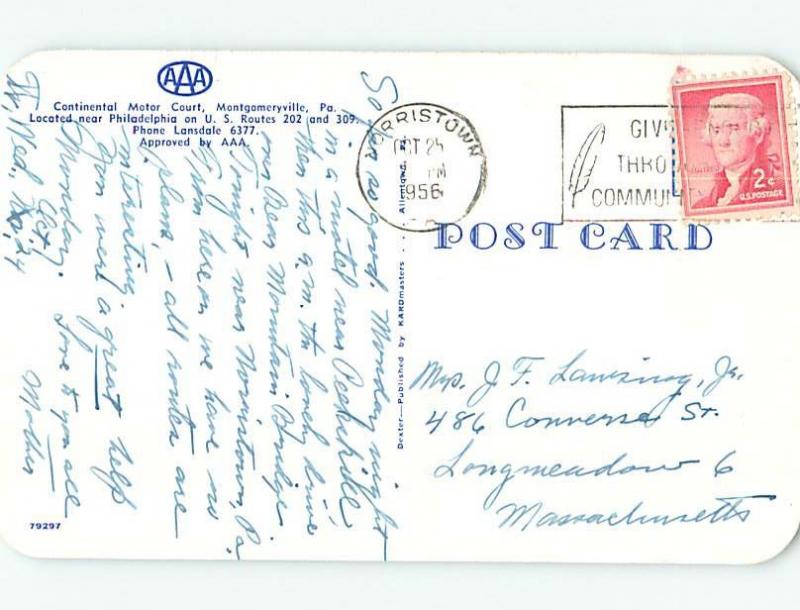 AAA
Continental Motor Court, Montgomeryville, Pa.
Located near Philadelphia on U. S. Routes 202 and 309.
Phone Lansdale 6377.
Approved by AAA.
W, Wed, Oct. 24
So far so good. Monday night
in a motel near Peekskill
then this a.m. the lovely drive
over Bear Mountain Bridge
Tonight near Norristown, Pa.
From here on we have no
plans, - all routes are
interesting.
You were a great help
Monday.
Love to you all
Mother
79297
Dexter—Published by KARDmasters . . . Allentown, Pa.
NORRISTOWN
OCT 25
PM
1956
GIVE
THRO
COMMUNI
2¢
U.S. POSTAGE
POST CARD
Mrs. J. F. Jr.
486 Converse St.
Longmeadow 6
Massachusetts